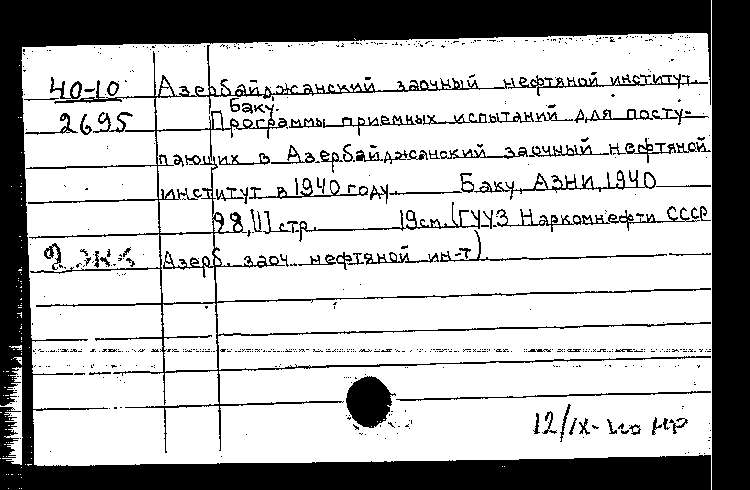 40-10 Азербайджанский заочный нефтяной институт.
Баку.
2695 Программы приемных испытаний для посту-
пающих в Азербайджанский заочный нефтяной
институт в 1940 году. Баку, АЗНИ, 1940
28,[1] стр. 19см. (ГУУЗ Наркомнефти СССР
2 экз Азерб. заоч. нефтяной ин-т)
12/IX-40 НР